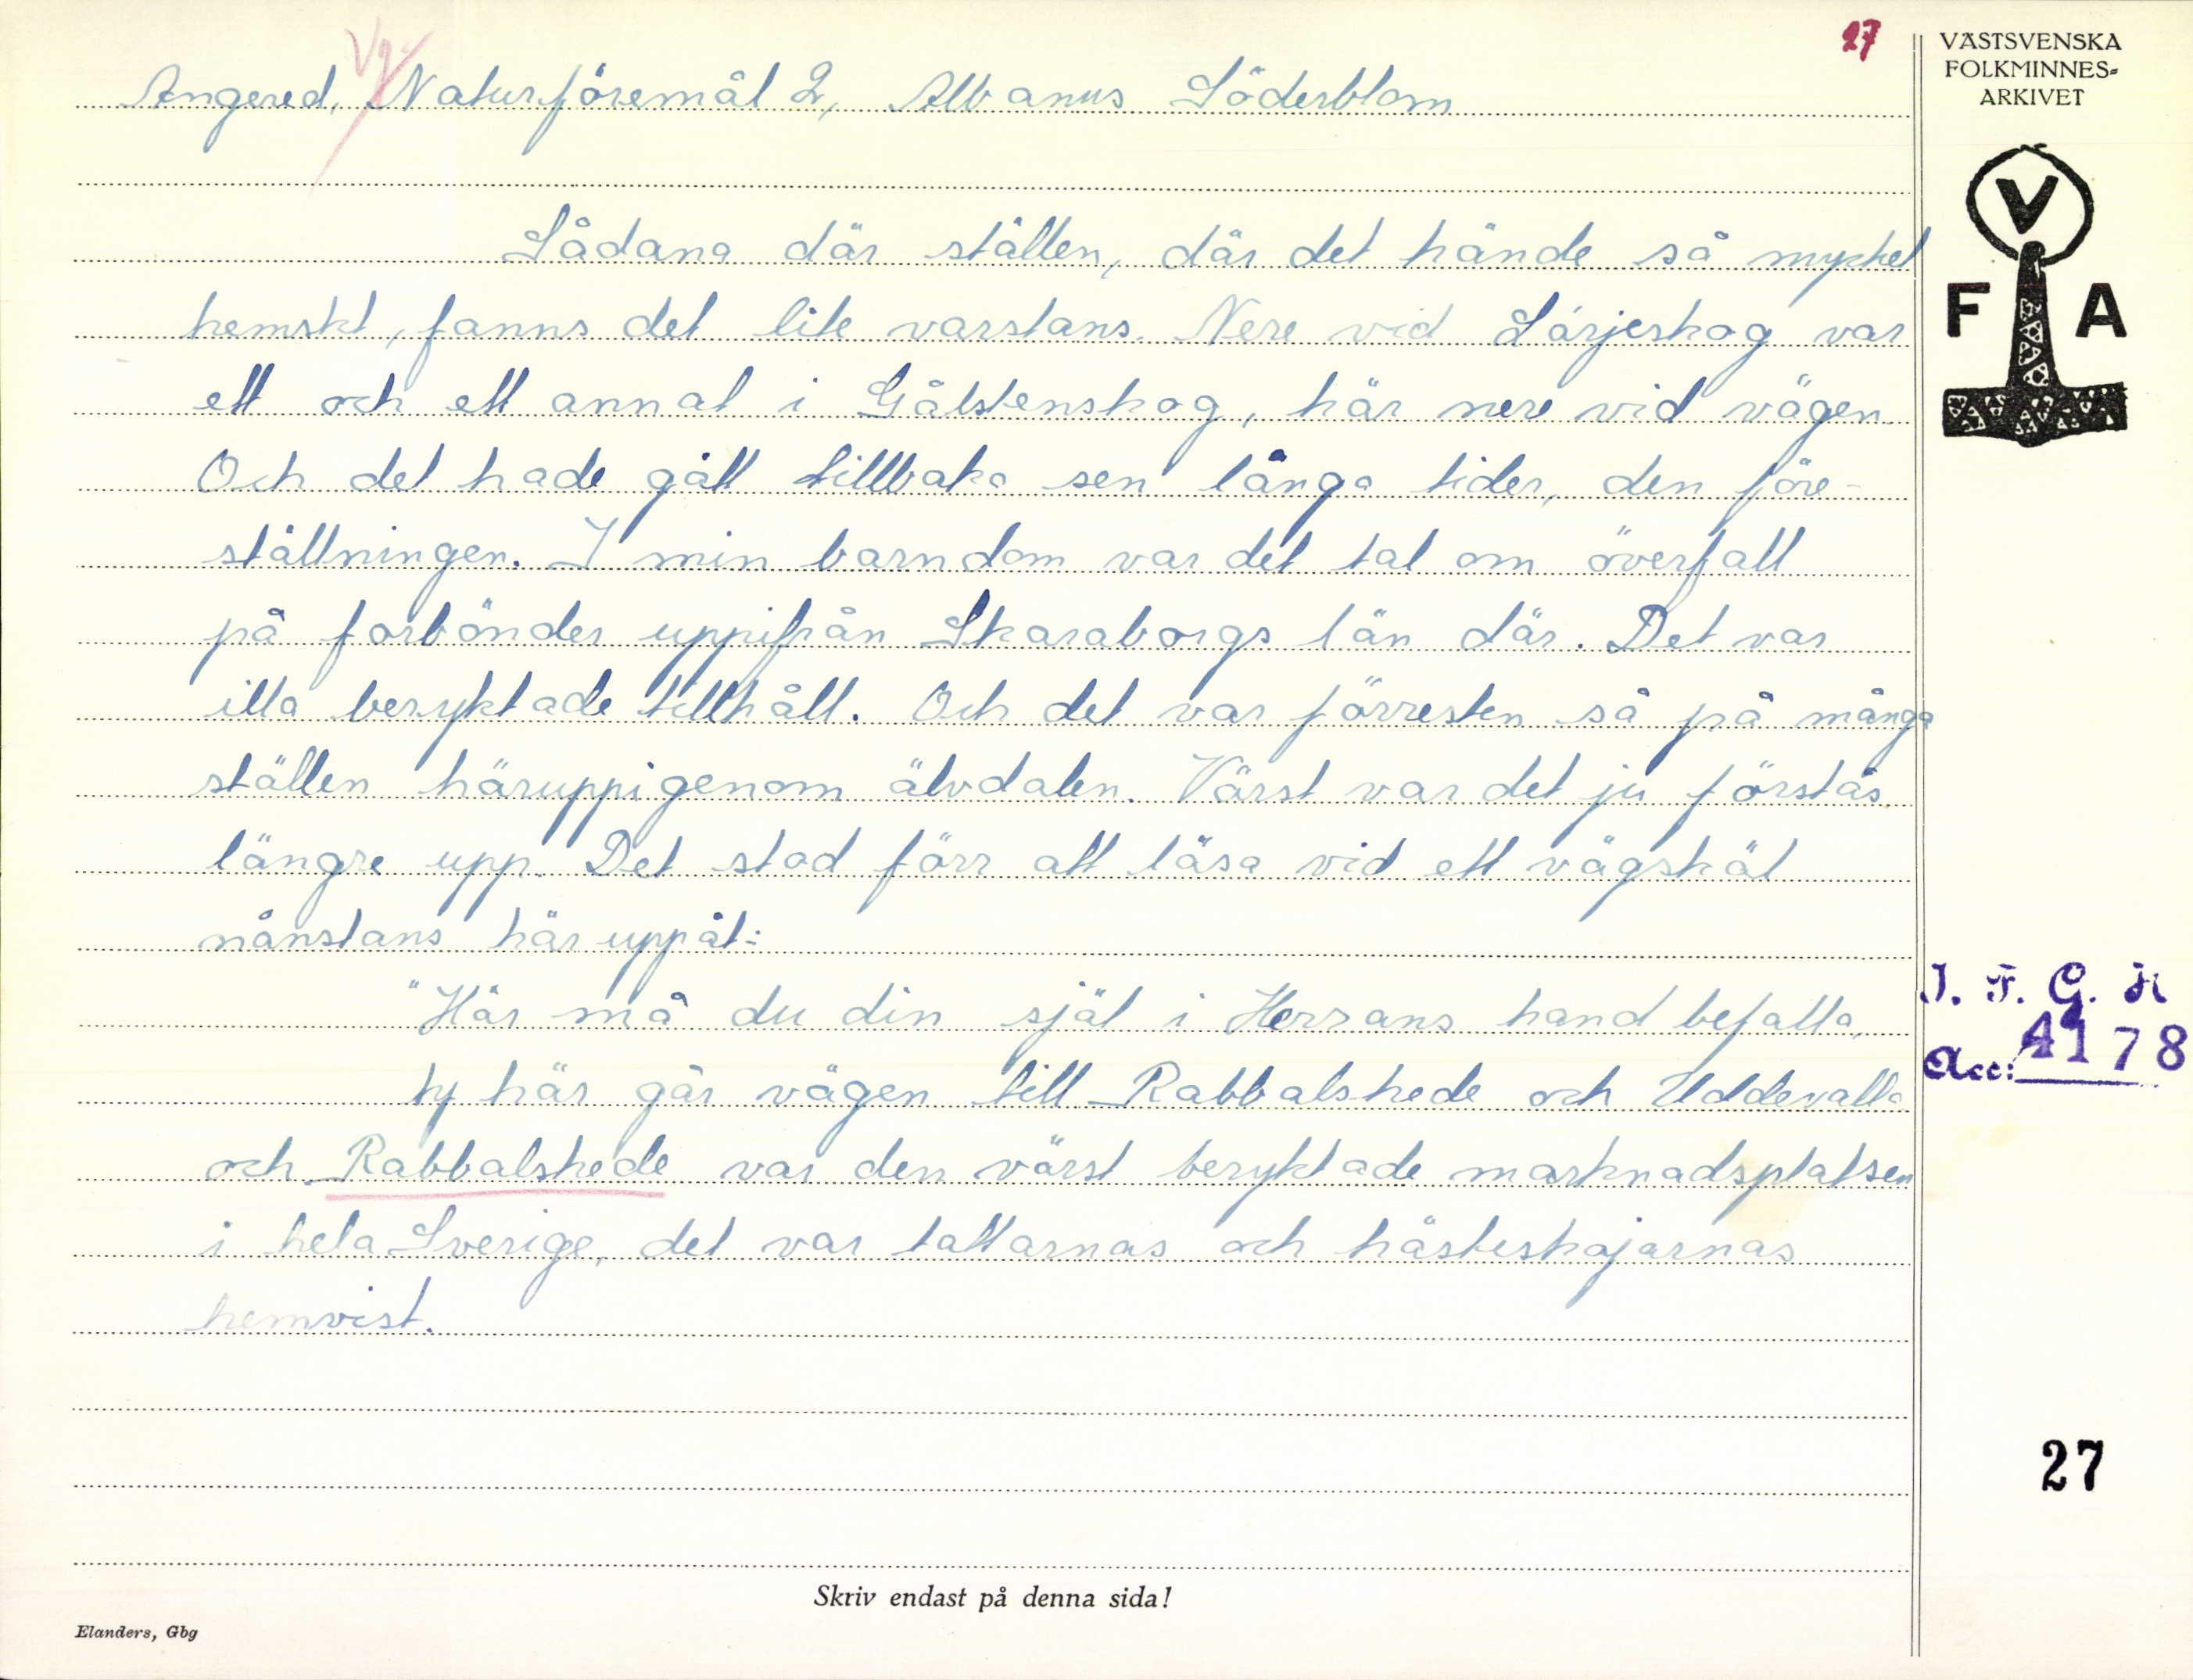 27
Vg.
Angered, Naturföremål 2, Albanus Söderblom
Sådana där ställen, där det hände så mycket
hemskt, fanns det lite varstans. Nere vid Lärjeskog var
ett och ett annat i Gåtstenskog, här nere vid vägen.
Och det hade gått tillbaka sen långa tider, den före-
ställningen. I min barndom var det tal om överfall
på forbönder uppifrån Skaraborgs län där. Det var
illa beryktade tillhåll. Och det var förresten så på många
ställen häruppigenom älvdalen. Värst var det ju förstås
längre upp. Det stod förr att läsa vid ett vägskäl
nånstans här uppåt:
"Här må du din själ i Herrans hand befalla,
ty här går vägen till Rabbalshede och Uddevalla
och Rabbalshede var den värst beryktade marknadsplatsen
i hela Sverige, det var tattarnas och hästeskojarnas
hemvist.
Skriv endast på denna sida!
Elanders, Gbg
VÄSTSVENSKA
FOLKMINNES-
ARKIVET
V
F A
I. F. G. H
Acc: 4178
27